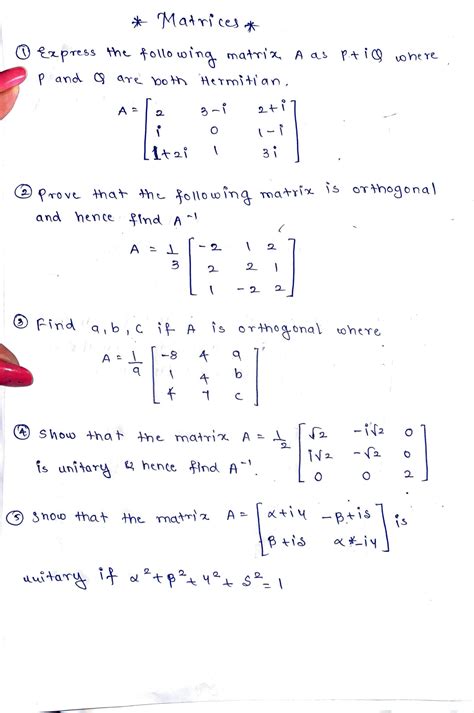 * Matrices *
① Express the following matrix A as P+iQ where
P and Q are both Hermitian.
A = [ 2 3-i 2+i ]
[ i 0 1-i ]
[ 1+2i 1 3i ]
② Prove that the following matrix is orthogonal
and hence find A⁻¹
A = 1/3 [ -2 1 2 ]
[ 2 2 1 ]
[ 1 -2 2 ]
③ Find a, b, c if A is orthogonal where
A = 1/9 [ -8 4 a ]
[ 1 4 b ]
[ 4 7 c ]
④ Show that the matrix A = 1/2 [ √2 -i√2 0 ]
[ i√2 -√2 0 ]
[ 0 0 2 ]
is unitary & hence find A⁻¹.
⑤ Show that the matrix A = [ α+iγ -β+is ] is
[ β+is α-iγ ]
unitary if α²+β²+γ²+s²=1